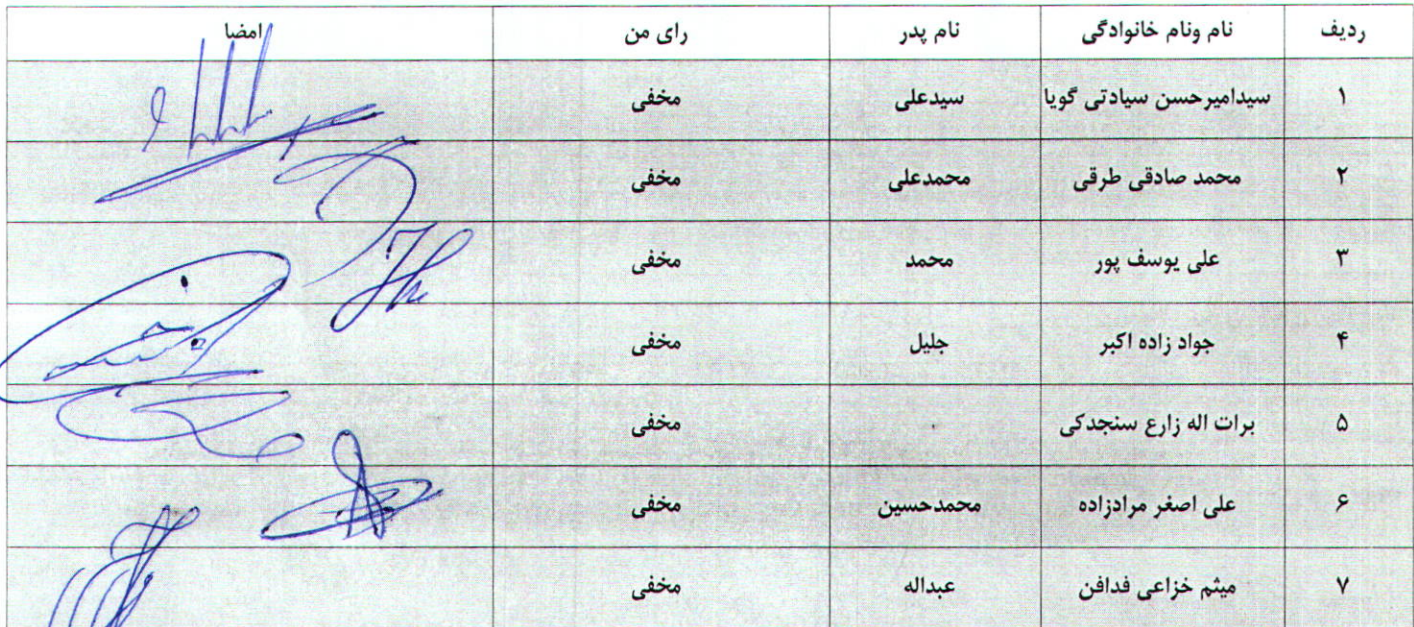 ردیف نام ونام خانوادگی نام پدر رای من امضا
۱ سیدامیرحسن سیادتی گویا سیدعلی مخفی
۲ محمد صادقی طرقی محمدعلی مخفی
۳ علی یوسف پور محمد مخفی
۴ جواد زاده اکبر جلیل مخفی
۵ برات اله زارع سنجدکی مخفی
۶ علی اصغر مرادزاده محمدحسین مخفی
۷ میثم خزاعی فدافن عبداله مخفی